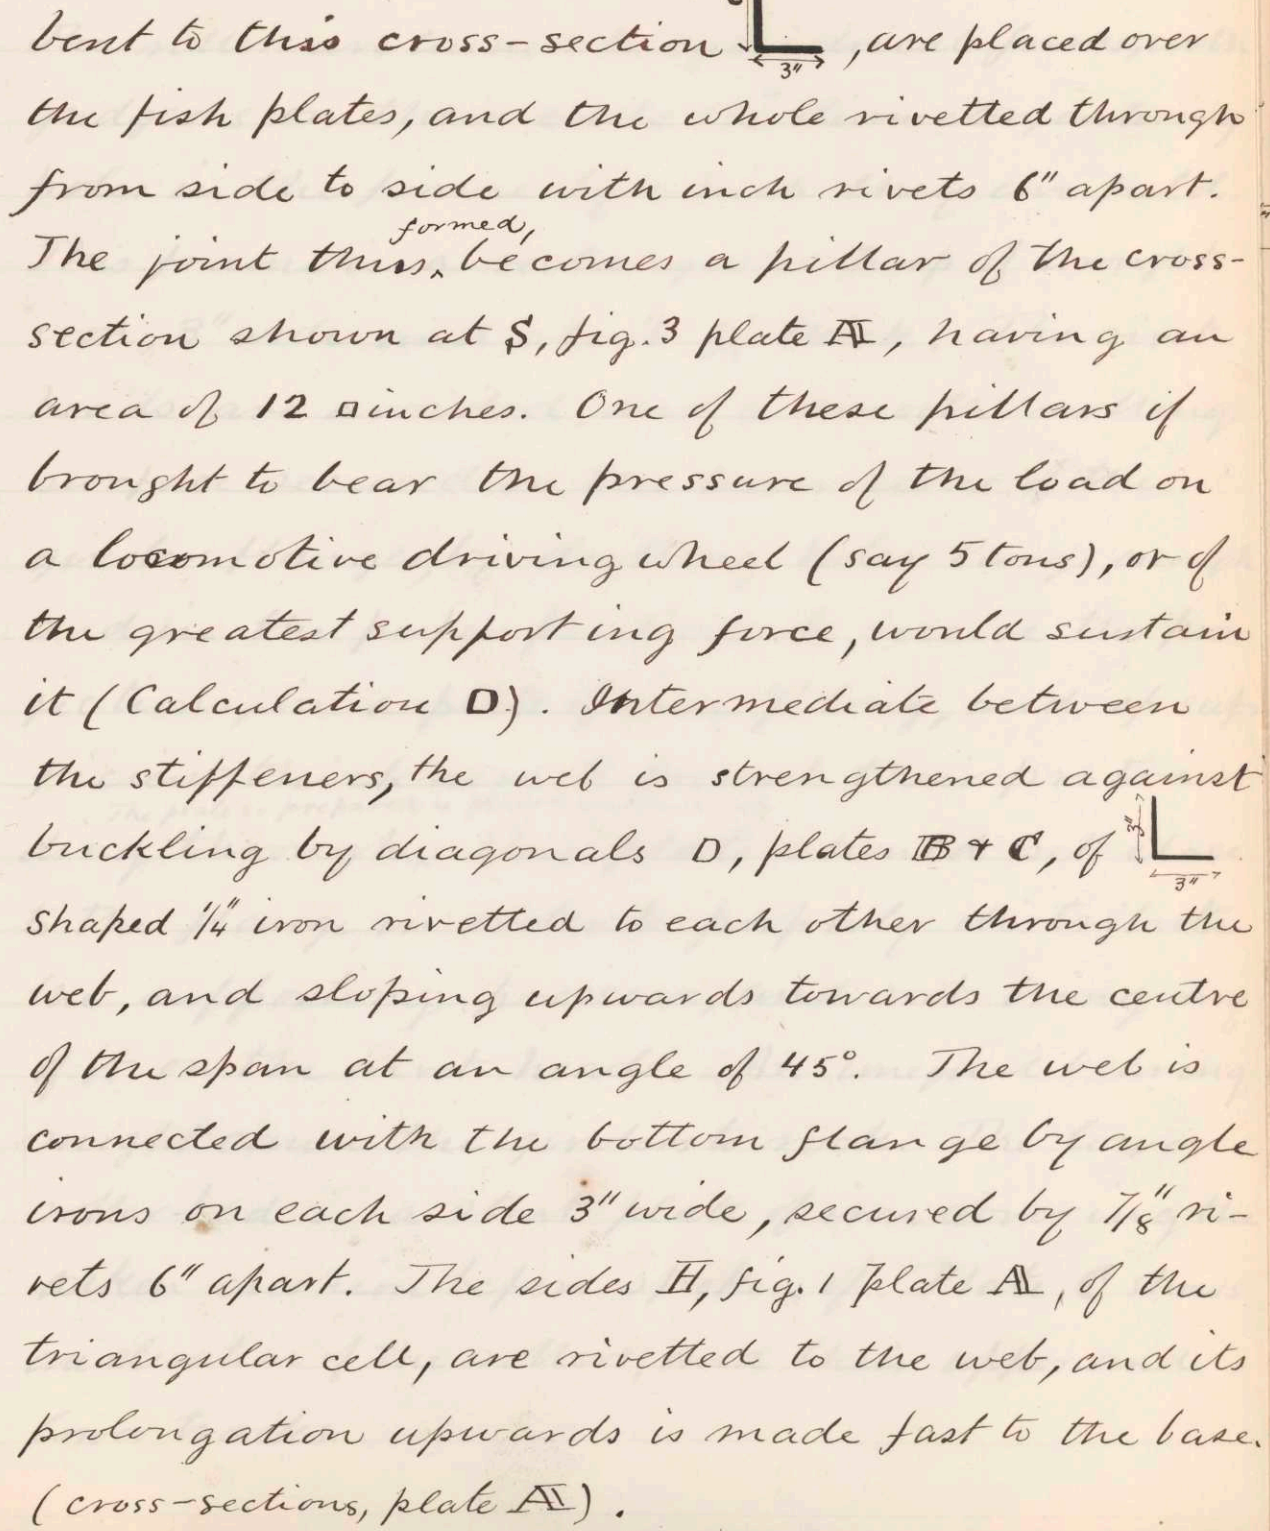 bent to this cross-section L 3", are placed over
the fish plates, and the whole rivetted through
from side to side with inch rivets 6" apart.
The joint thus ‸formed, becomes a pillar of the cross-
section shown at S, fig. 3 plate A, having an
area of 12 □ inches. One of these pillars if
brought to bear the pressure of the load on
a locomotive driving wheel (say 5 tons), or of
the greatest supporting force, would sustain
it (Calculation D). Intermediate between
the stiffeners, the web is strengthened against
buckling by diagonals D, plates B & C, of 3" L 3"
shaped 1/4" iron rivetted to each other through the
web, and sloping upwards towards the centre
of the span at an angle of 45°. The web is
connected with the bottom flange by angle
irons on each side 3" wide, secured by 7/8" ri-
vets 6" apart. The sides H, fig. 1 plate A, of the
triangular cell, are rivetted to the web, and its
prolongation upwards is made fast to the base.
(cross-sections, plate A).